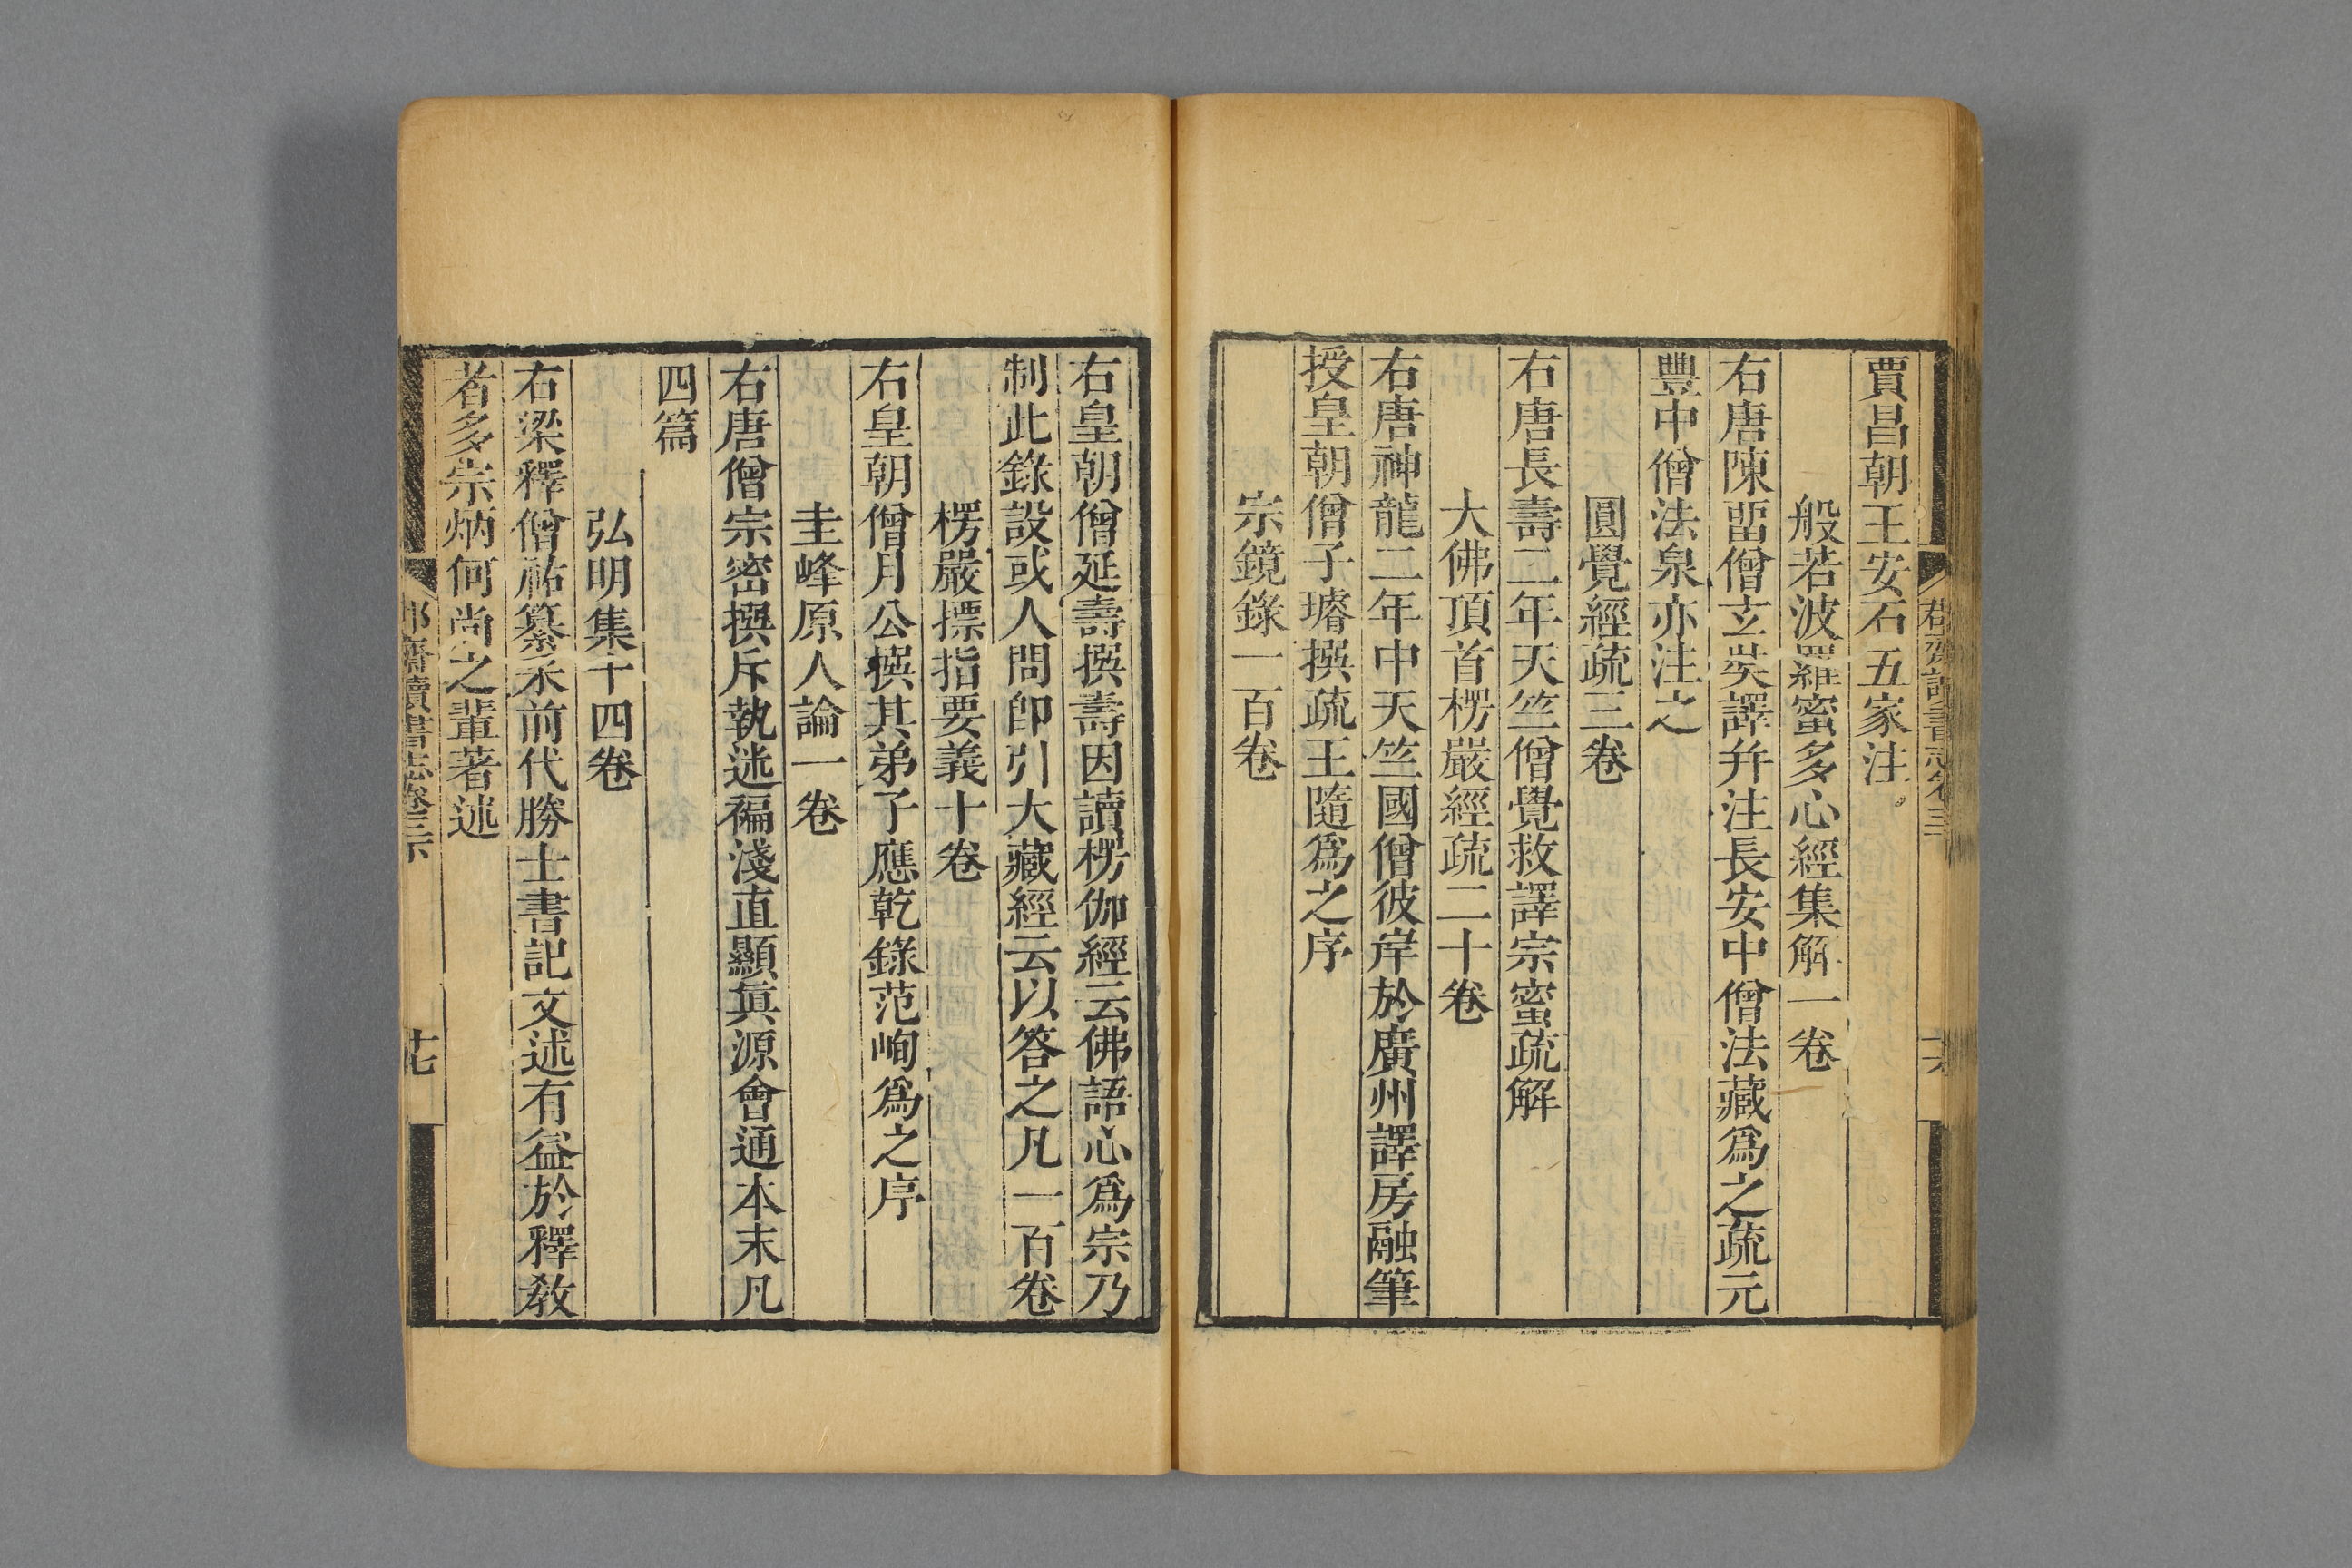 賈昌朝王安石五家注
般若波羅蜜多心經集解一卷
右唐陳畱僧玄奘譯并注長安中僧法藏爲之疏元
豐中僧法泉亦注之
圓覺經疏三卷
右唐長壽二年天竺僧覺救譯宗蜜疏解
大佛頂首楞嚴經疏二十卷
右唐神龍二年中天竺國僧彼岸於廣州譯房融筆
授皇朝僧子璿撰疏王隨爲之序
宗鏡錄一百卷
右皇朝僧延壽撰壽因讀楞伽經云佛語心爲宗乃
制此錄設或人問卽引大藏經云以答之凡一百卷
楞嚴摽指要義十卷
右皇朝僧月公撰其弟子應乾錄范峋爲之序
圭峰原人論一卷
右唐僧宗密撰斥執迷褊淺直顯眞源會通本末凡
四篇
弘明集十四卷
右梁釋僧祐纂承前代勝士書記文述有益於釋敎
者多宗炳何尚之輩著述
齋讀書志卷三下
十七